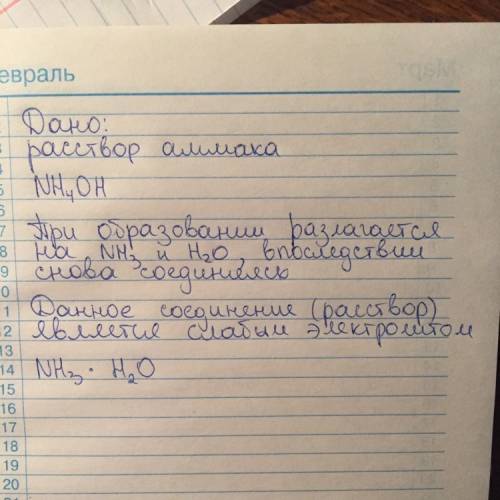 евраль
Март
Дано:
3 расствор аммака
4
5 NH4OH
6
7 При образовании разлагается
8 на NH3 и H2O, впоследствии
9 снова соединяясь
0
1 Данное соединение (расствор)
12 является слабым электролитом
13
14 NH3 · H2O
15
16
17
18
19
20